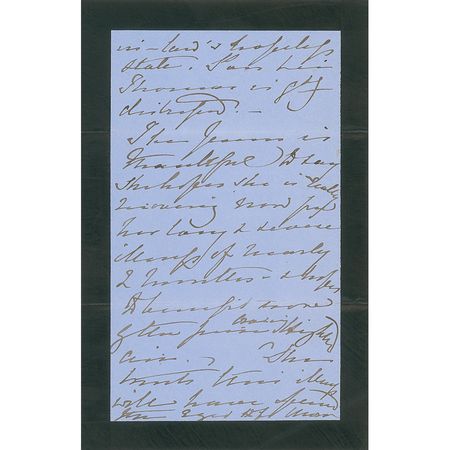 in-law's hopeless
state. Poor
Thomas is gtly
distressed. —
The Queen is
thankful to say
She hopes she is really
recovering now from
her long & severe
illness of nearly
2 months - & hopes
to benefit more
by the pure Highld
air. - She
trusts this may
will have